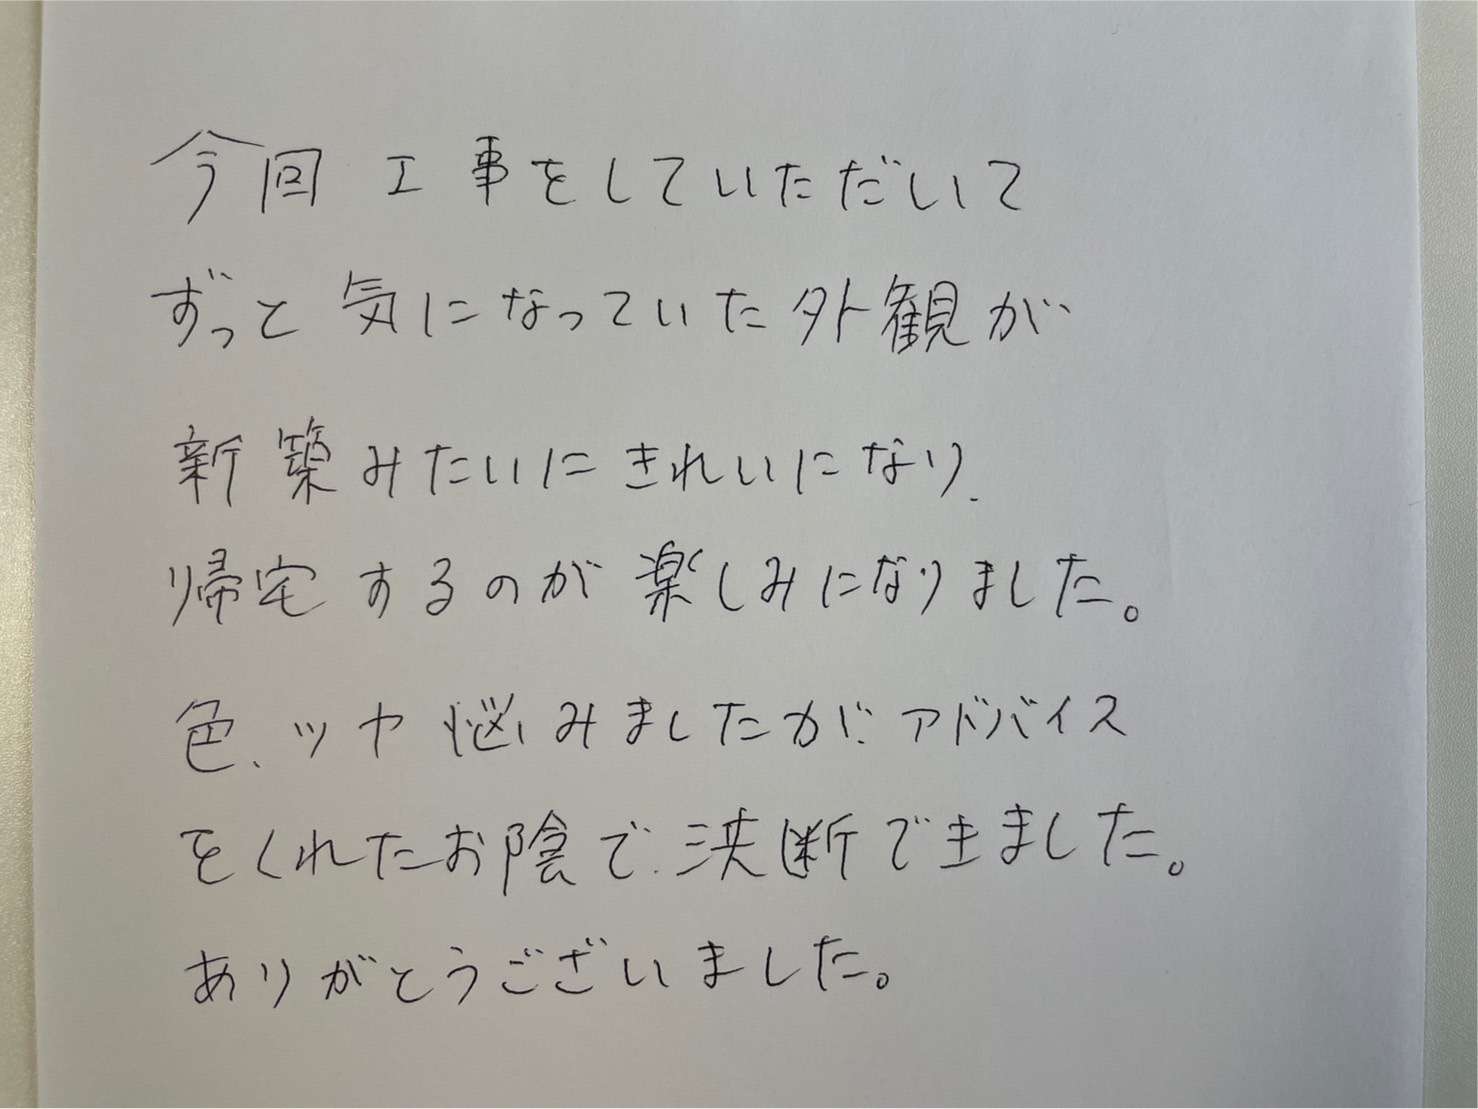 今回 工事をしていただいて
ずっと気になっていた外観が
新築みたいにきれいになり、
帰宅するのが楽しみになりました。
色、ツヤ悩みましたが、アドバイス
をくれたお陰で、決断できました。
ありがとうございました。